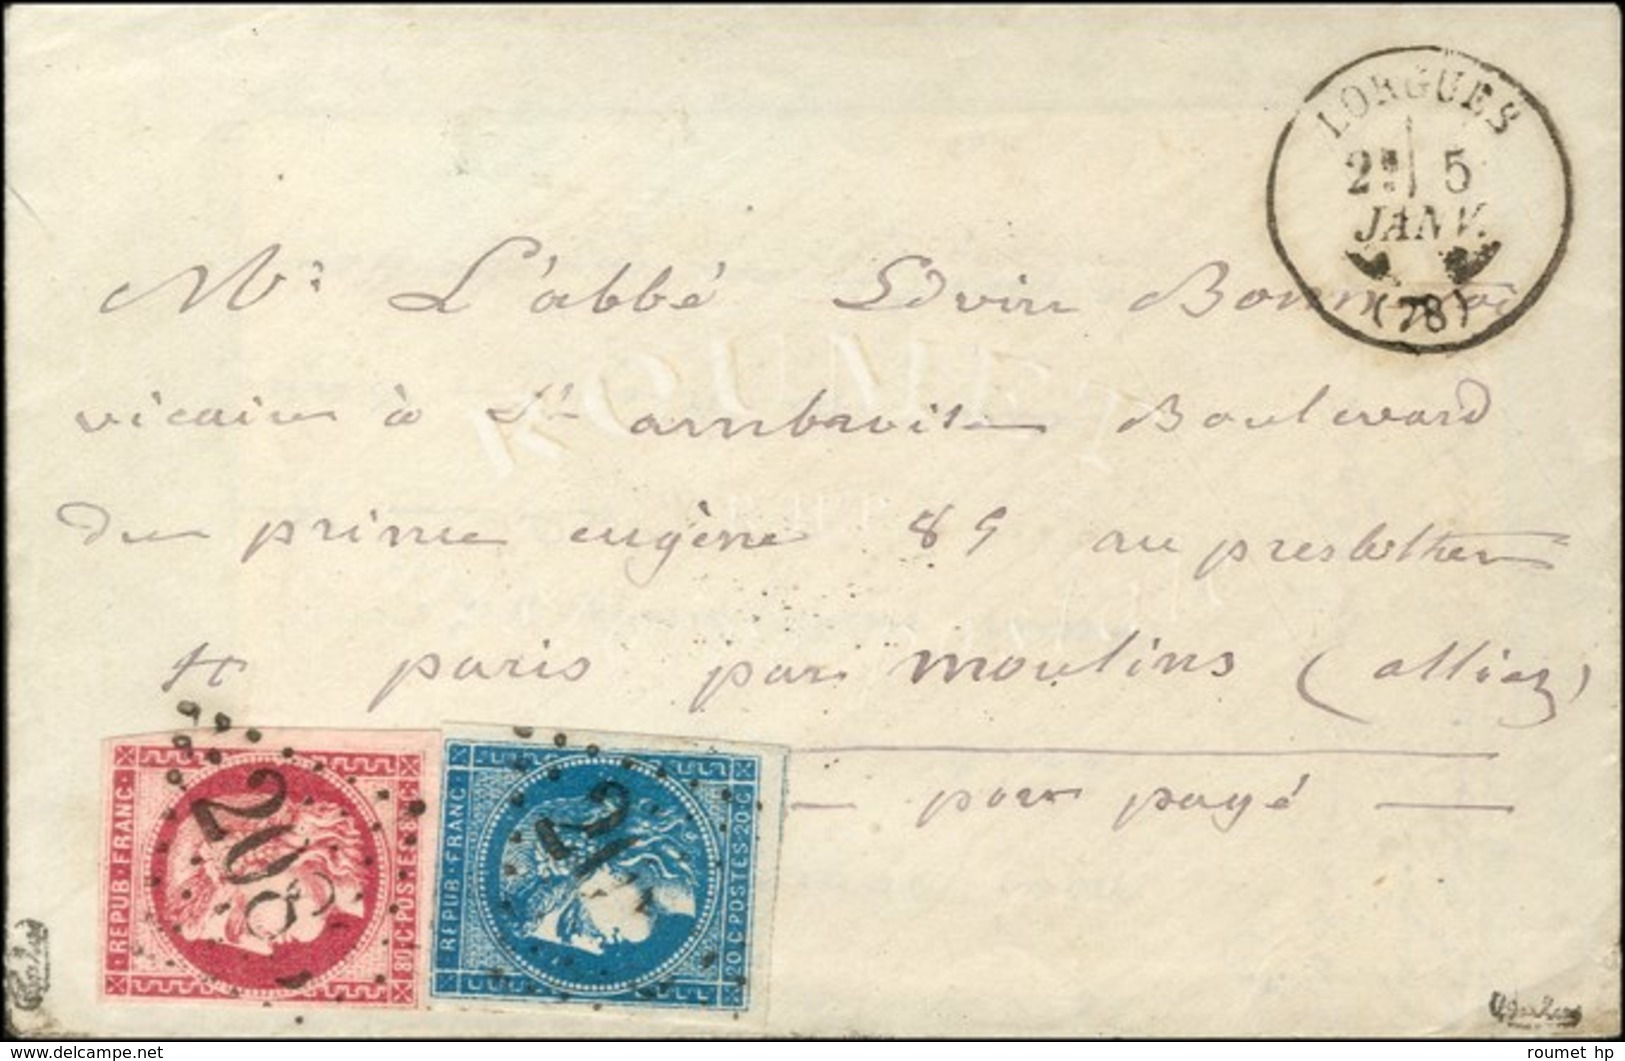 LORGUES
2E 5
JANV.
(78)
Mr L'abbé Edvin
vicaire à St ambroise Boulevard
du prince eugène 89 au presbithere
paris par moulins (allier)
pour payé
ROUMET
208
REPUB·FRANC·
80·C·POSTES·80·C
REPUB·FRANC·
20·C·POSTES·20·C
delcampe.net
roumet hp